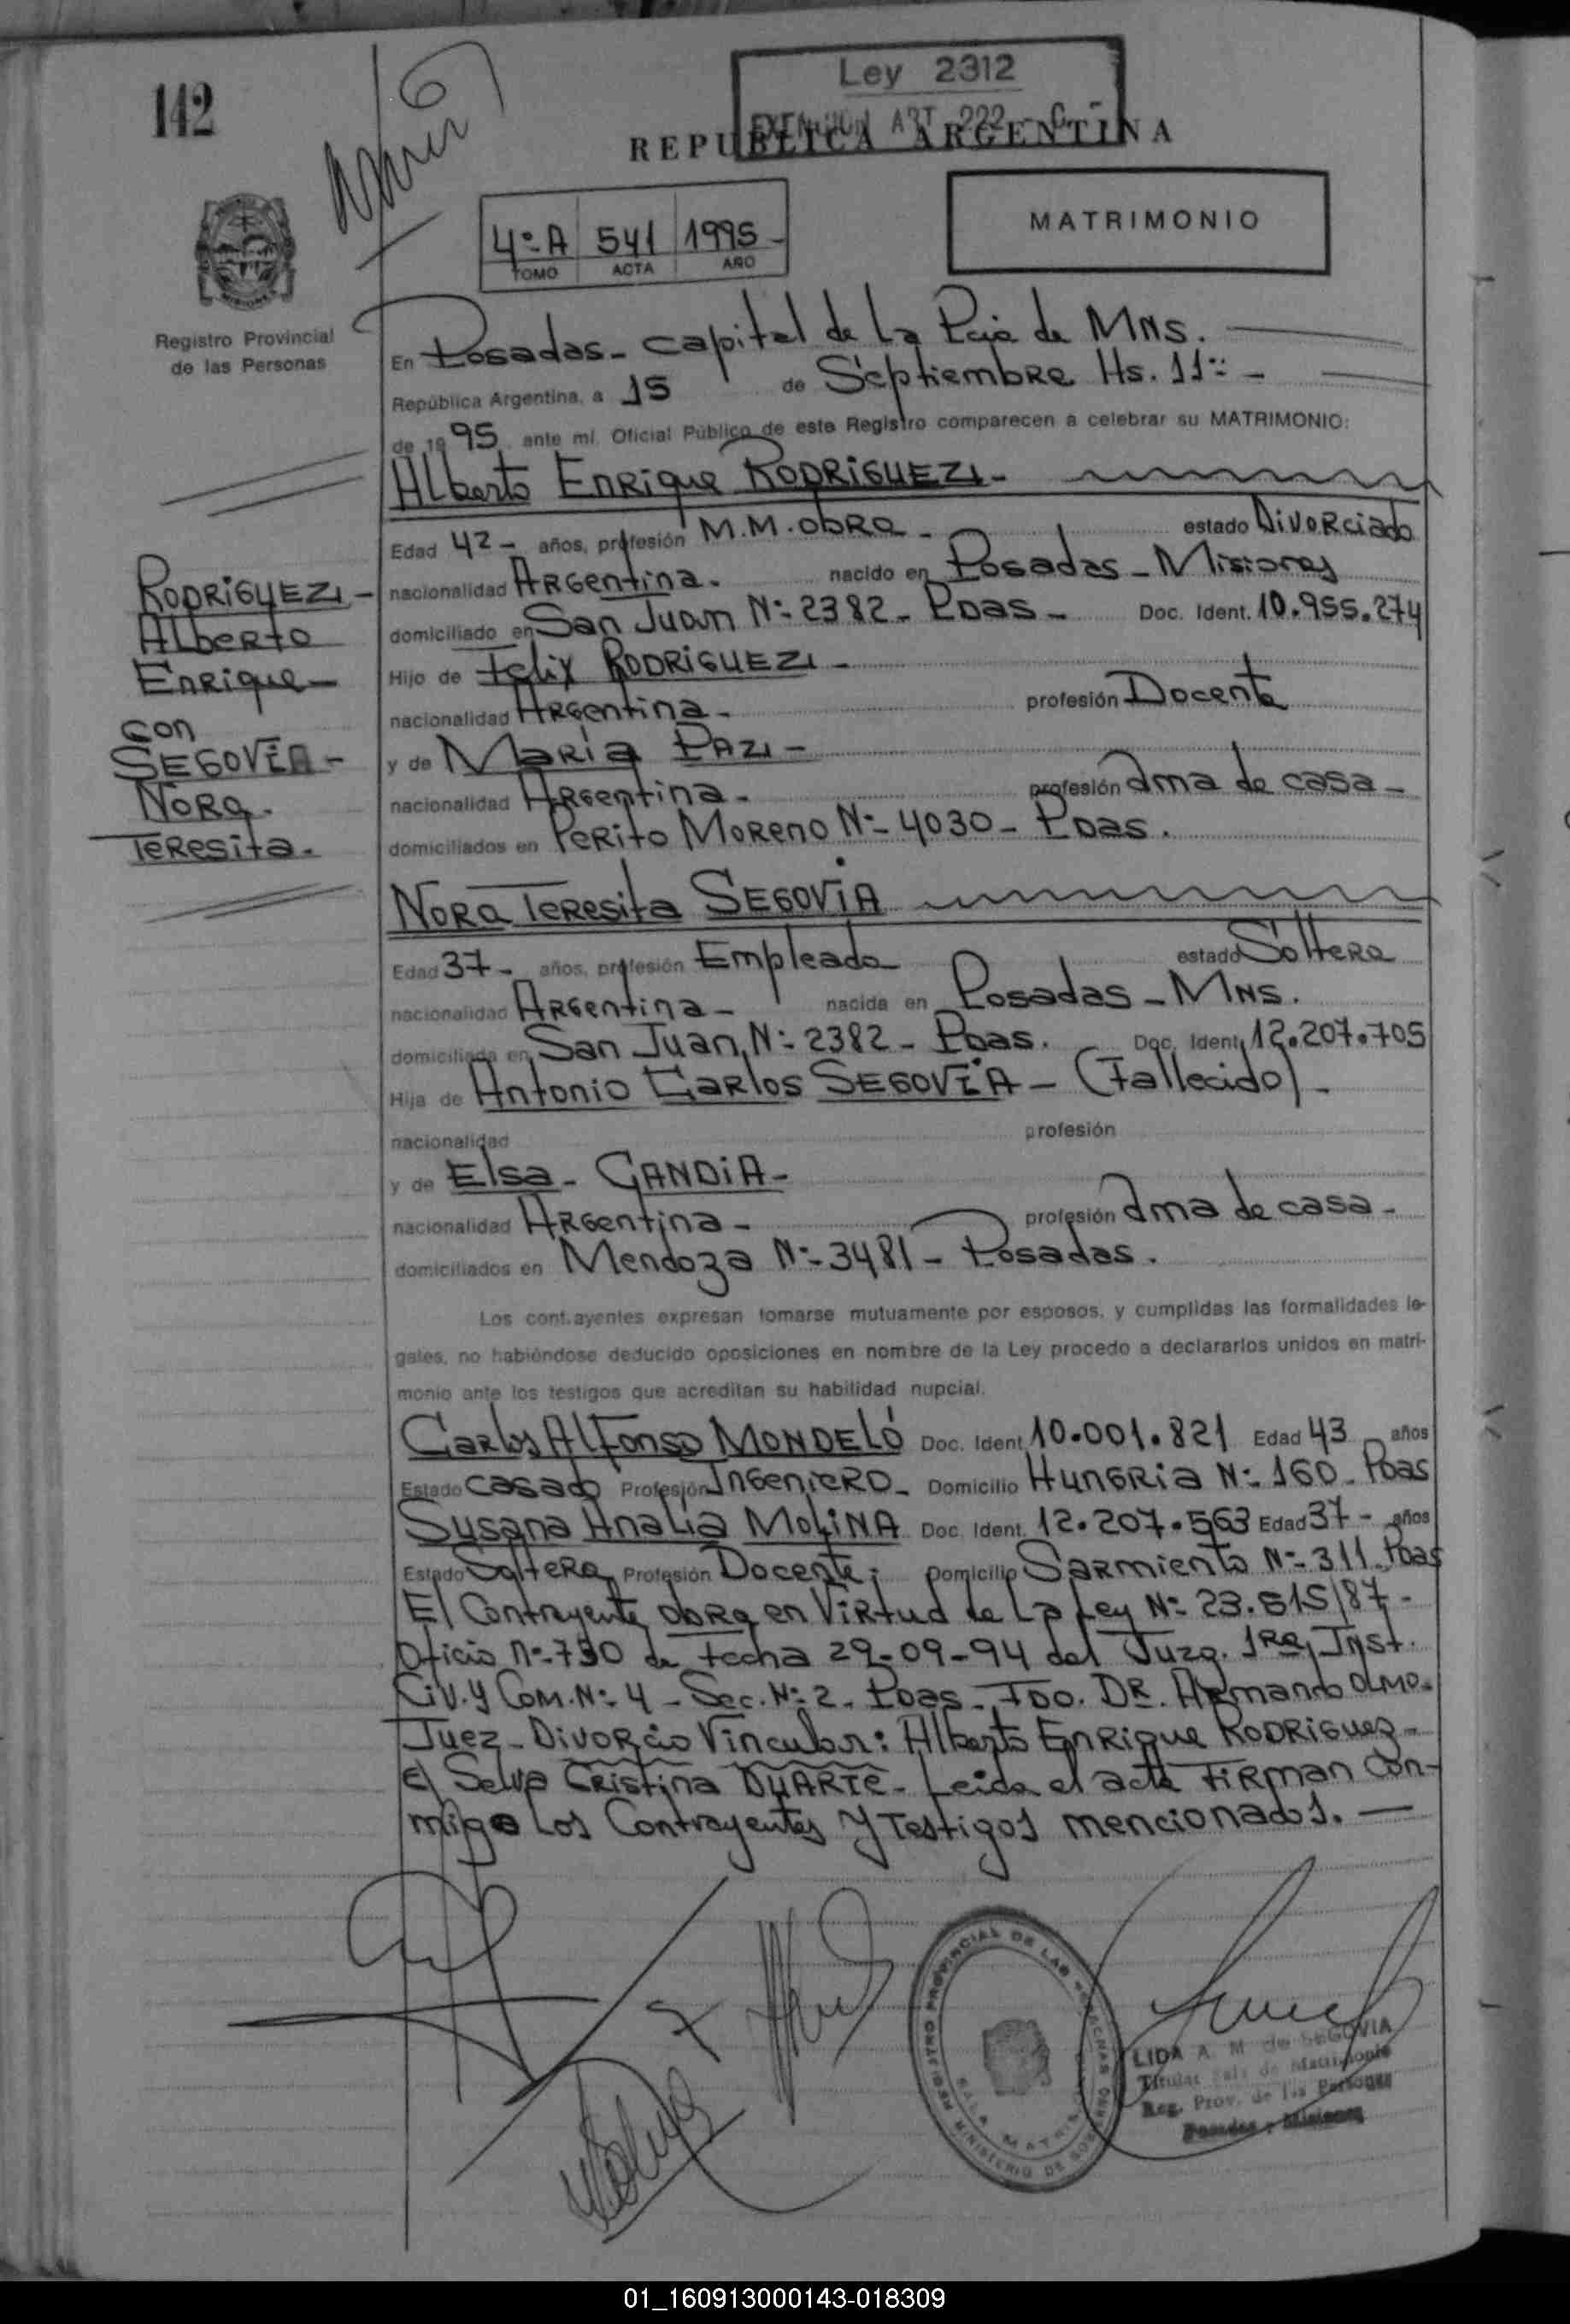 142
Ley 2312
EXENCION ART 222 - C.
REPUBLICA ARGENTINA
MATRIMONIO
4º A 541 1995
TOMO ACTA AÑO
Registro Provincial
de las Personas
En Posadas - capital de la Pcia de MNS.
República Argentina, a 15 de Septiembre Hs. 11
de 1995 ante mí, Oficial Público de este Registro comparecen a celebrar su MATRIMONIO:
Alberto Enrique RODRIGUEZ
Edad 42 - años, profesión M.M.obra - estado Divorciado
nacionalidad Argentina. nacido en Posadas - Misiones
domiciliado en San Juan Nº 2382 - Pdas - Doc. Ident. 10.955.274
Hijo de Felix RODRIGUEZ -
nacionalidad Argentina - profesión Docente
y de María PAZ -
nacionalidad Argentina - profesión Ama de casa -
domiciliados en Perito Moreno Nº 4030 - Pdas.
RODRIGUEZ -
Alberto
Enrique -
con
SEGOVIA -
Nora
Teresita.
Nora Teresita SEGOVIA
Edad 37 - años, profesión Empleada estado Soltera
nacionalidad Argentina - nacida en Posadas - MNS.
domiciliada en San Juan Nº 2382 - Pdas. Doc. Ident. 12.207.705
Hija de Antonio Carlos SEGOVIA - (Fallecido) -
nacionalidad profesión
y de Elsa - GANDIA -
nacionalidad Argentina - profesión Ama de casa -
domiciliados en Mendoza Nº 3481 - Posadas.
Los cont.ayentes expresan tomarse mutuamente por esposos, y cumplidas las formalidades le-
gales, no habiéndose deducido oposiciones en nombre de la Ley procedo a declararlos unidos en matri-
monio ante los testigos que acreditan su habilidad nupcial.
Carlos Alfonso MONDELÓ Doc. Ident. 10.001.821 Edad 43 años
Estado Casado Profesión Ingeniero - Domicilio Hungria Nº 160 - Pdas
Susana Analia MOLINA Doc. Ident. 12.207.563 Edad 37 - años
Estado Soltera Profesión Docente; Domicilio Sarmiento Nº 311. Pdas
El Contrayente obra en Virtud de La Ley Nº 23.515/87 -
Oficio nº 730 de fecha 29-09-94 del Juzg. 1ra Inst.
Civ. y Com. Nº 4 - Sec. Nº 2 - Pdas - FDO. DR. Armando OLMO -
Juez - Divorcio Vincular: Alberto Enrique RODRIGUEZ -
c/ Selva Cristina DUARTE - Leida el acta Firman Con-
migo Los Contrayentes y Testigos mencionados. -
REGISTRO PROVINCIAL DE LAS PERSONAS
SALA MATRIMONIO
MINISTERIO DE GOBIERNO
LIDA A. M. de SEGOVIA
Titular Sala de Matrimonio
Reg. Prov. de las Personas
Posadas - Misiones
01_160913000143-018309